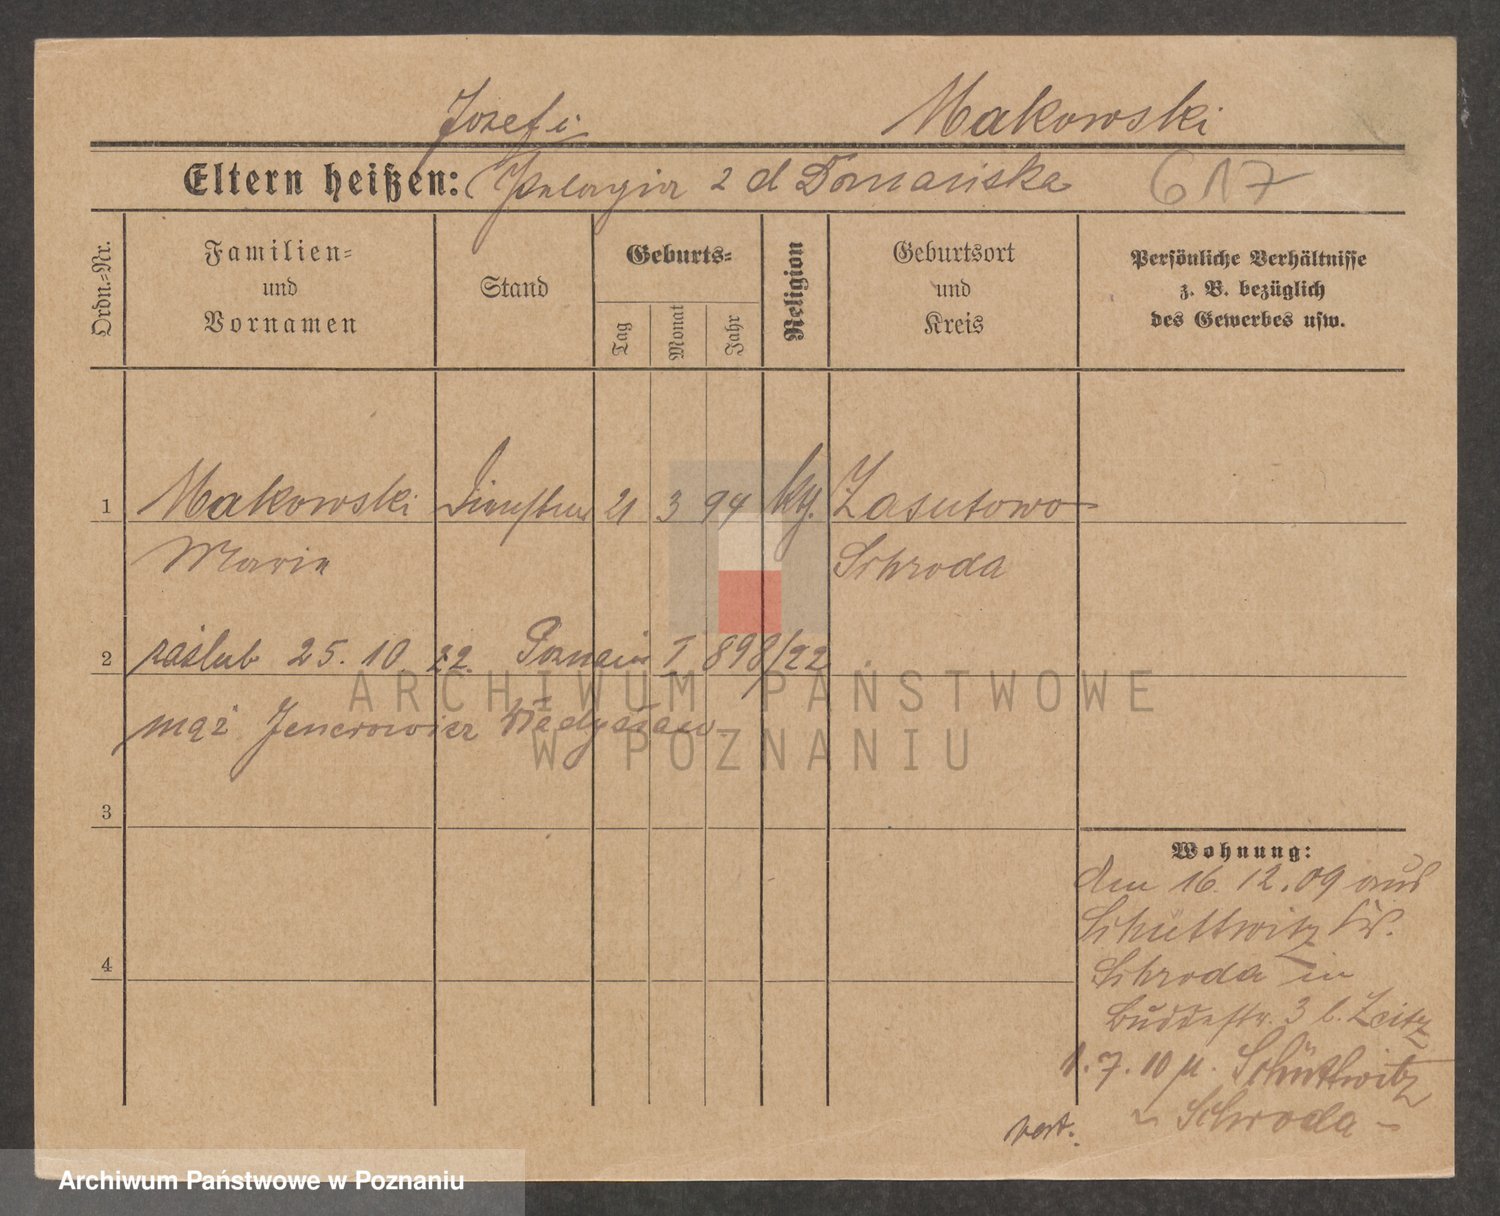 Josef i Makowski
Eltern heißen: Pelagia 2 d Domańska 617
Ordn.-Nr.
Familien-
und
Vornamen
Stand
Geburts-
Tag
Monat
Jahr
Religion
Geburtsort
und
Kreis
Persönliche Verhältnisse
z. B. bezüglich
des Gewerbes usw.
1 Makowski 21 3 94 Zasutowo
Marie Schroda
2 zaślub 25. 10. 22. Poznań T 898/22
mąż Władysław
3
Wohnung:
den 16. 12. 09 aus
Schüttwitz Kr.
4 Schroda in
Buddestr. 3 b. Zeitz
1. 7. 10 n. Schüttwitz
Schroda -
ARCHIWUM PAŃSTWOWE
W POZNANIU
Archiwum Państwowe w Poznaniu